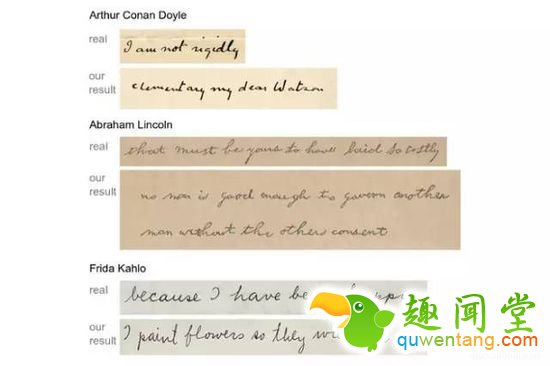 Arthur Conan Doyle
real
I am not rigidly
our
result
elementary my dear Watson
Abraham Lincoln
real
that must be yours to have laid so costly
our
result
no man is good enough to govern another
man without the others consent
Frida Kahlo
real
because I have
our
result
I paint flowers so they
趣闻堂
quwentang.com